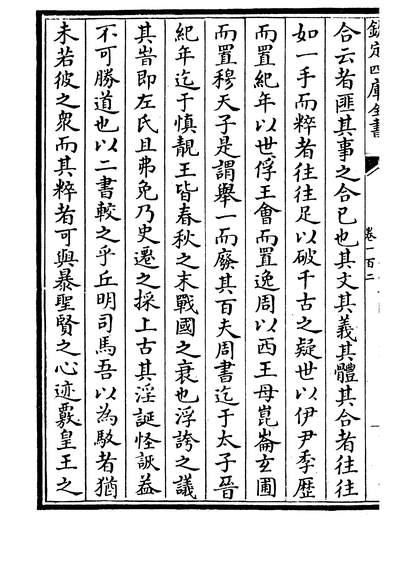 欽定四庫全書
卷一百二
合云者匪其事之合已也其文其義其體其合者往往
如一手而粹者往往足以破千古之疑世以伊尹季歴
而置紀年以世俘王會而置逸周以西王母崑崙玄圃
而置穆天子是謂舉一而廢其百夫周書迄于太子晉
紀年迄于慎靚王皆春秋之末戰國之衰也浮誇之議
其㫖即左氏且弗免乃史遷之採上古其淫誕怪詼益
不可勝道也以二書較之乎丘明司馬吾以為駮者猶
未若彼之衆而其粹者可與暴聖賢之心迹覈皇王之